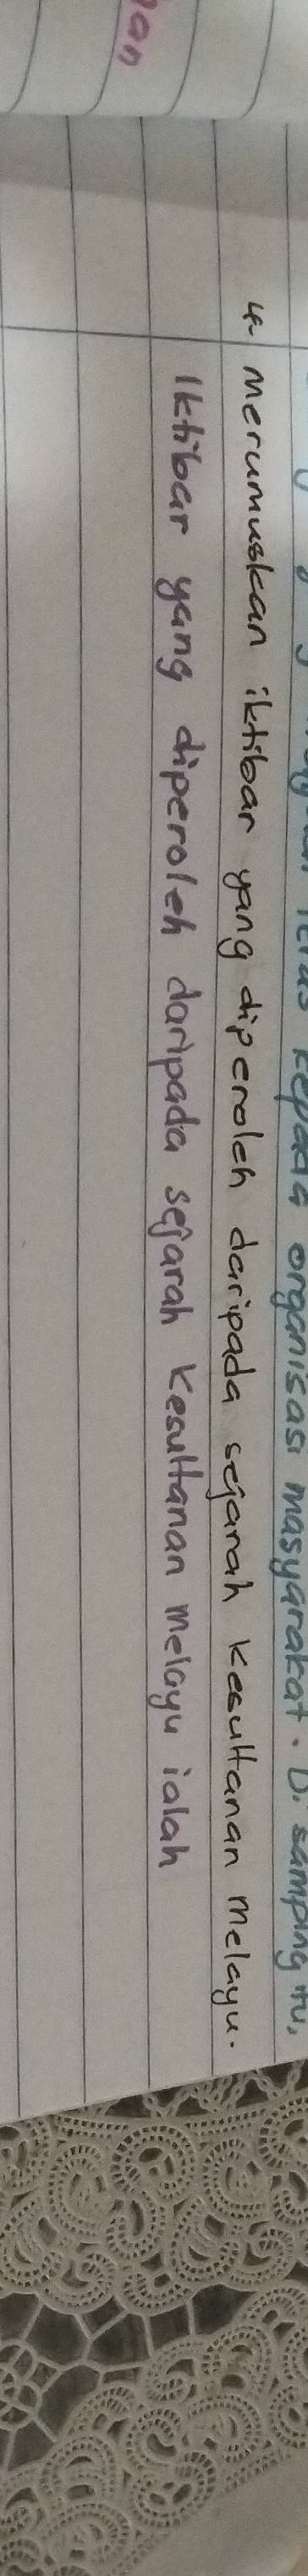 organisasi masyarakat. Di samping itu,
4- Merumuskan iktibar yang diperoleh daripada sejarah Kesultanan Melayu.
Iktibar yang diperoleh daripada sejarah Kesultanan Melayu ialah